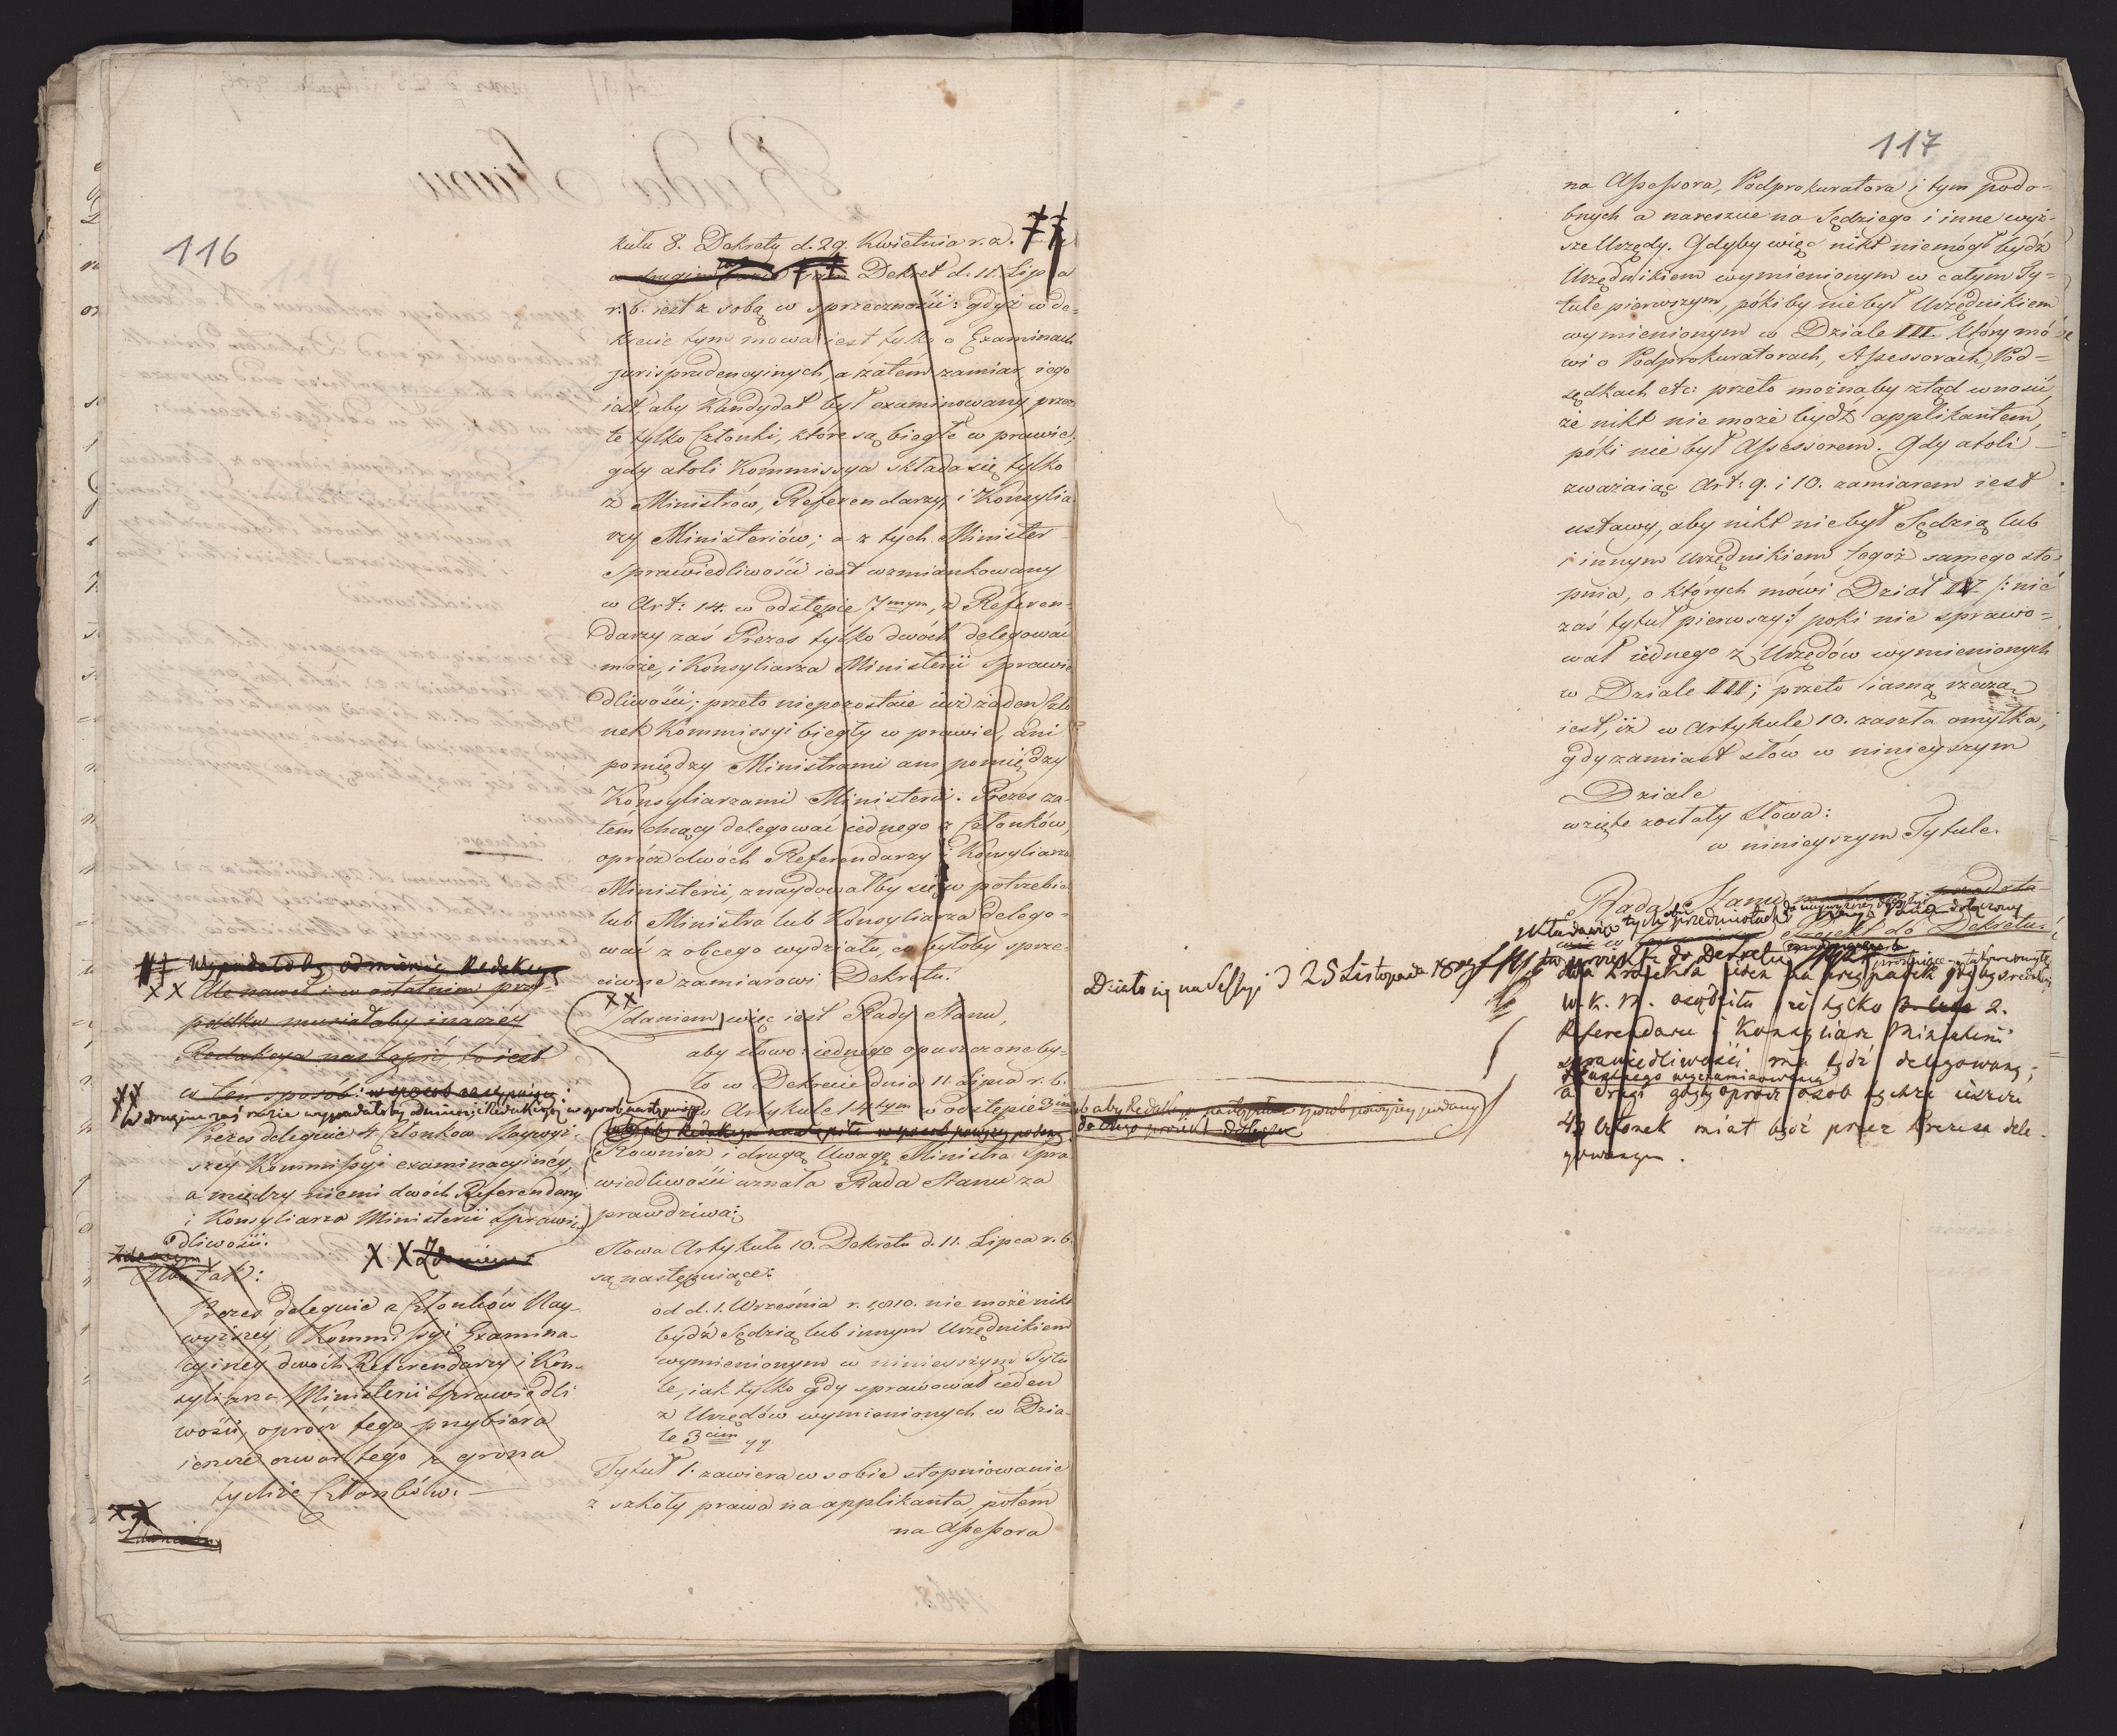 116
kułu 8. Dekretu d. 29. Kwietnia r. a.
Dekret d. 11. Lipca
r. b. iest z sobą w sprzeczności: gdyż w de-
krecie tym mowa iest tylko o Examinach
jurisprudencyinych, a zatém zamiar iego
iest, aby Kandydat był examinowany przez
te tylko Członki, które są biegłe w prawie,
gdy atoli Kommissya składa się tylko
z Ministrów, Referendarzy, i Konsylia
rzy Ministeriów; a z tych Minister
Sprawiedliwości iest wzmiankowany
w Art: 14. w odstępie 7mym, z Referen-
darzy zaś Prezes tylko dwóch delegować
może, i Konsyliarza Ministerii Sprawie
dliwości; przeto niepozostaie iuż żaden Czło
nek Kommissyi biegły w prawie, ani
pomiędzy Ministrami ani pomiędzy
Konsyliarzami Ministerii. Prezes za-
tém chcący delegować iednego z Członków,
oprócz dwóch Referendarzy i Konsyliarza
Ministerii, znaydowałby się w potrzebie
lub Ministra lub Konsyliarza delego-
wać z obcego wydziału, co byłoby sprze-
ciwne zamiarowi Dekretu.
XX
Zdaniem więc iest Rady Stanu,
aby słowo: iednego opuszczone by-
ło w Dekrecie dnia 11. Lipca r. b.
w Artykule 14tym w odstępie 3im
lub aby Redakcya nastąpiła w sposób powyżey podany
Rownież i drugą Uwagę Ministra Spra
wiedliwości uznała Rada Stanu za
prawdziwą;
Słowa Artykułu 10. Dekretu d. 11. Lipca r. b.
są następuiące:
od d. 1. Września r. 1810. nie może nikt
bydź Sędzią lub innym Urzędnikiem
wymienionym w ninieyszym Tytu
le, iak tylko gdy sprawował ieden
z Urzędów wymienionych w Dzia-
le 3cim
Tytuł 1. zawiera w sobie stopniowanie
z szkoły prawa na applikanta, potém
na Assessora
Wypadałoby odmienić Redakcyą
XX Ale nawet i w ostatnim przy-
padku musiałaby inaczéy
Redakcya nastąpić to iest
w ten sposób: w sposob następuiący:
XX
W drugim zaś razie wypadałoby odmienić Redakcyą w sposob następuiący
Prezes deleguie 4. Członkow Naywyż-
széy Kommissyi examinacyinéy,
a między niemi dwóch Referendarzy
i Konsyliarza Ministerii Sprawie-
dliwości.
XX Zdaniem
tak:
Prezes deleguie z Członków Nay-
wyższéy Kommissyi Examina-
cyinéy dwóch Referendarzy i Kon-
syliarza Ministerii Sprawiedli
wości, oprócz tego przybiéra
ieszcze czwartego z grona
tychże Członków.
XX
Zdaniem
117
na Assessora, Podprokuratora i tym podo-
bnych a nareszcie na Sędziego i inne wyż-
sze Urzędy. Gdyby więc nikt niemógł bydź
Urzędnikiem wymienionym w całym Ty-
tule pierwszym, pókiby niebył Urzędnikiem
wymienionym w Dziale III. który mó-
wi o Podprokuratorach, Assessorach, Pod-
sędkach etc: przeto możnaby ztąd wnosić,
że nikt nie może bydź applikantem,
póki nie był Assessorem. Gdy atoli
zważaiąc Art: 9. i 10. zamiarem iest
ustawy, aby nikt niebył Sędzią lub
i innym Urzędnikiem tegoż samego sto-
pnia, o których mówi Dział IV. /: nie
zaś tytuł pierwszy :/ poki nie sprawo-
wał iednego z Urzędów wymienionych
w Dziale III; przeto iasną rzeczą
iest, iż w Artykule 10. zaszła omyłka,
gdy zamiast słów w ninieyszym
Dziale
wzięte zostały Słowa:
w ninieyszym Tytule.
Rada Stanu
Projekt do Dekretu
Działo się na Sessyi d 28 Listopada 1809
dwa Projekta ieden na przypadek gdyby
W. K. M. osądziła że tylko 2.
Referendarze i Konsyliarz Ministerii
sprawiedliwości ma bydź delegowany;
a drugi gdyby oprócz osob tychże ieszcze
4ty Członek miał być przez Prezesa dele-
gowanym.
lub aby Redakcya nastąpiła w sposób powyżey podany